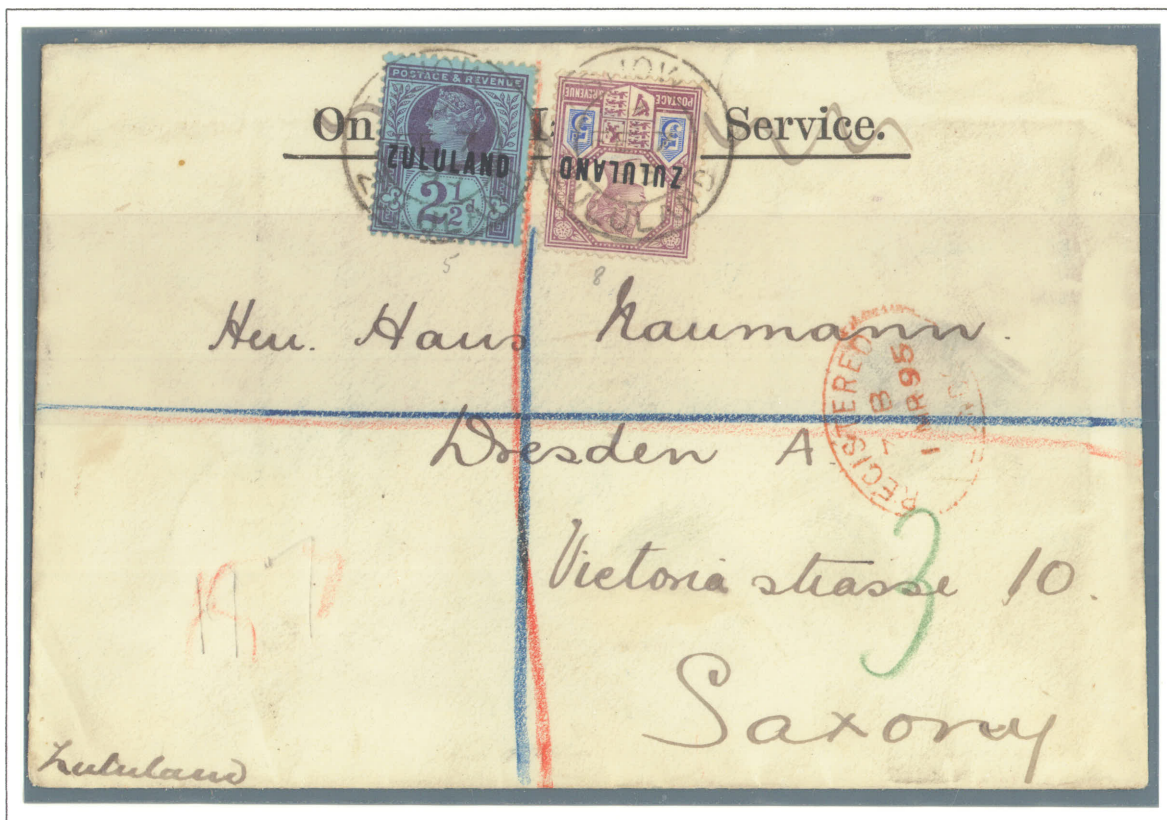 On Service.
POSTAGE & REVENUE
ZULULAND
2½d
POSTAGE REVENUE
5d 5d
ZULULAND
5
8
Herr. Hans Naumann.
Dresden A.
Victoria strasse 10.
Saxony
REGISTERED
7 B
1 MR 95
3
Zululand